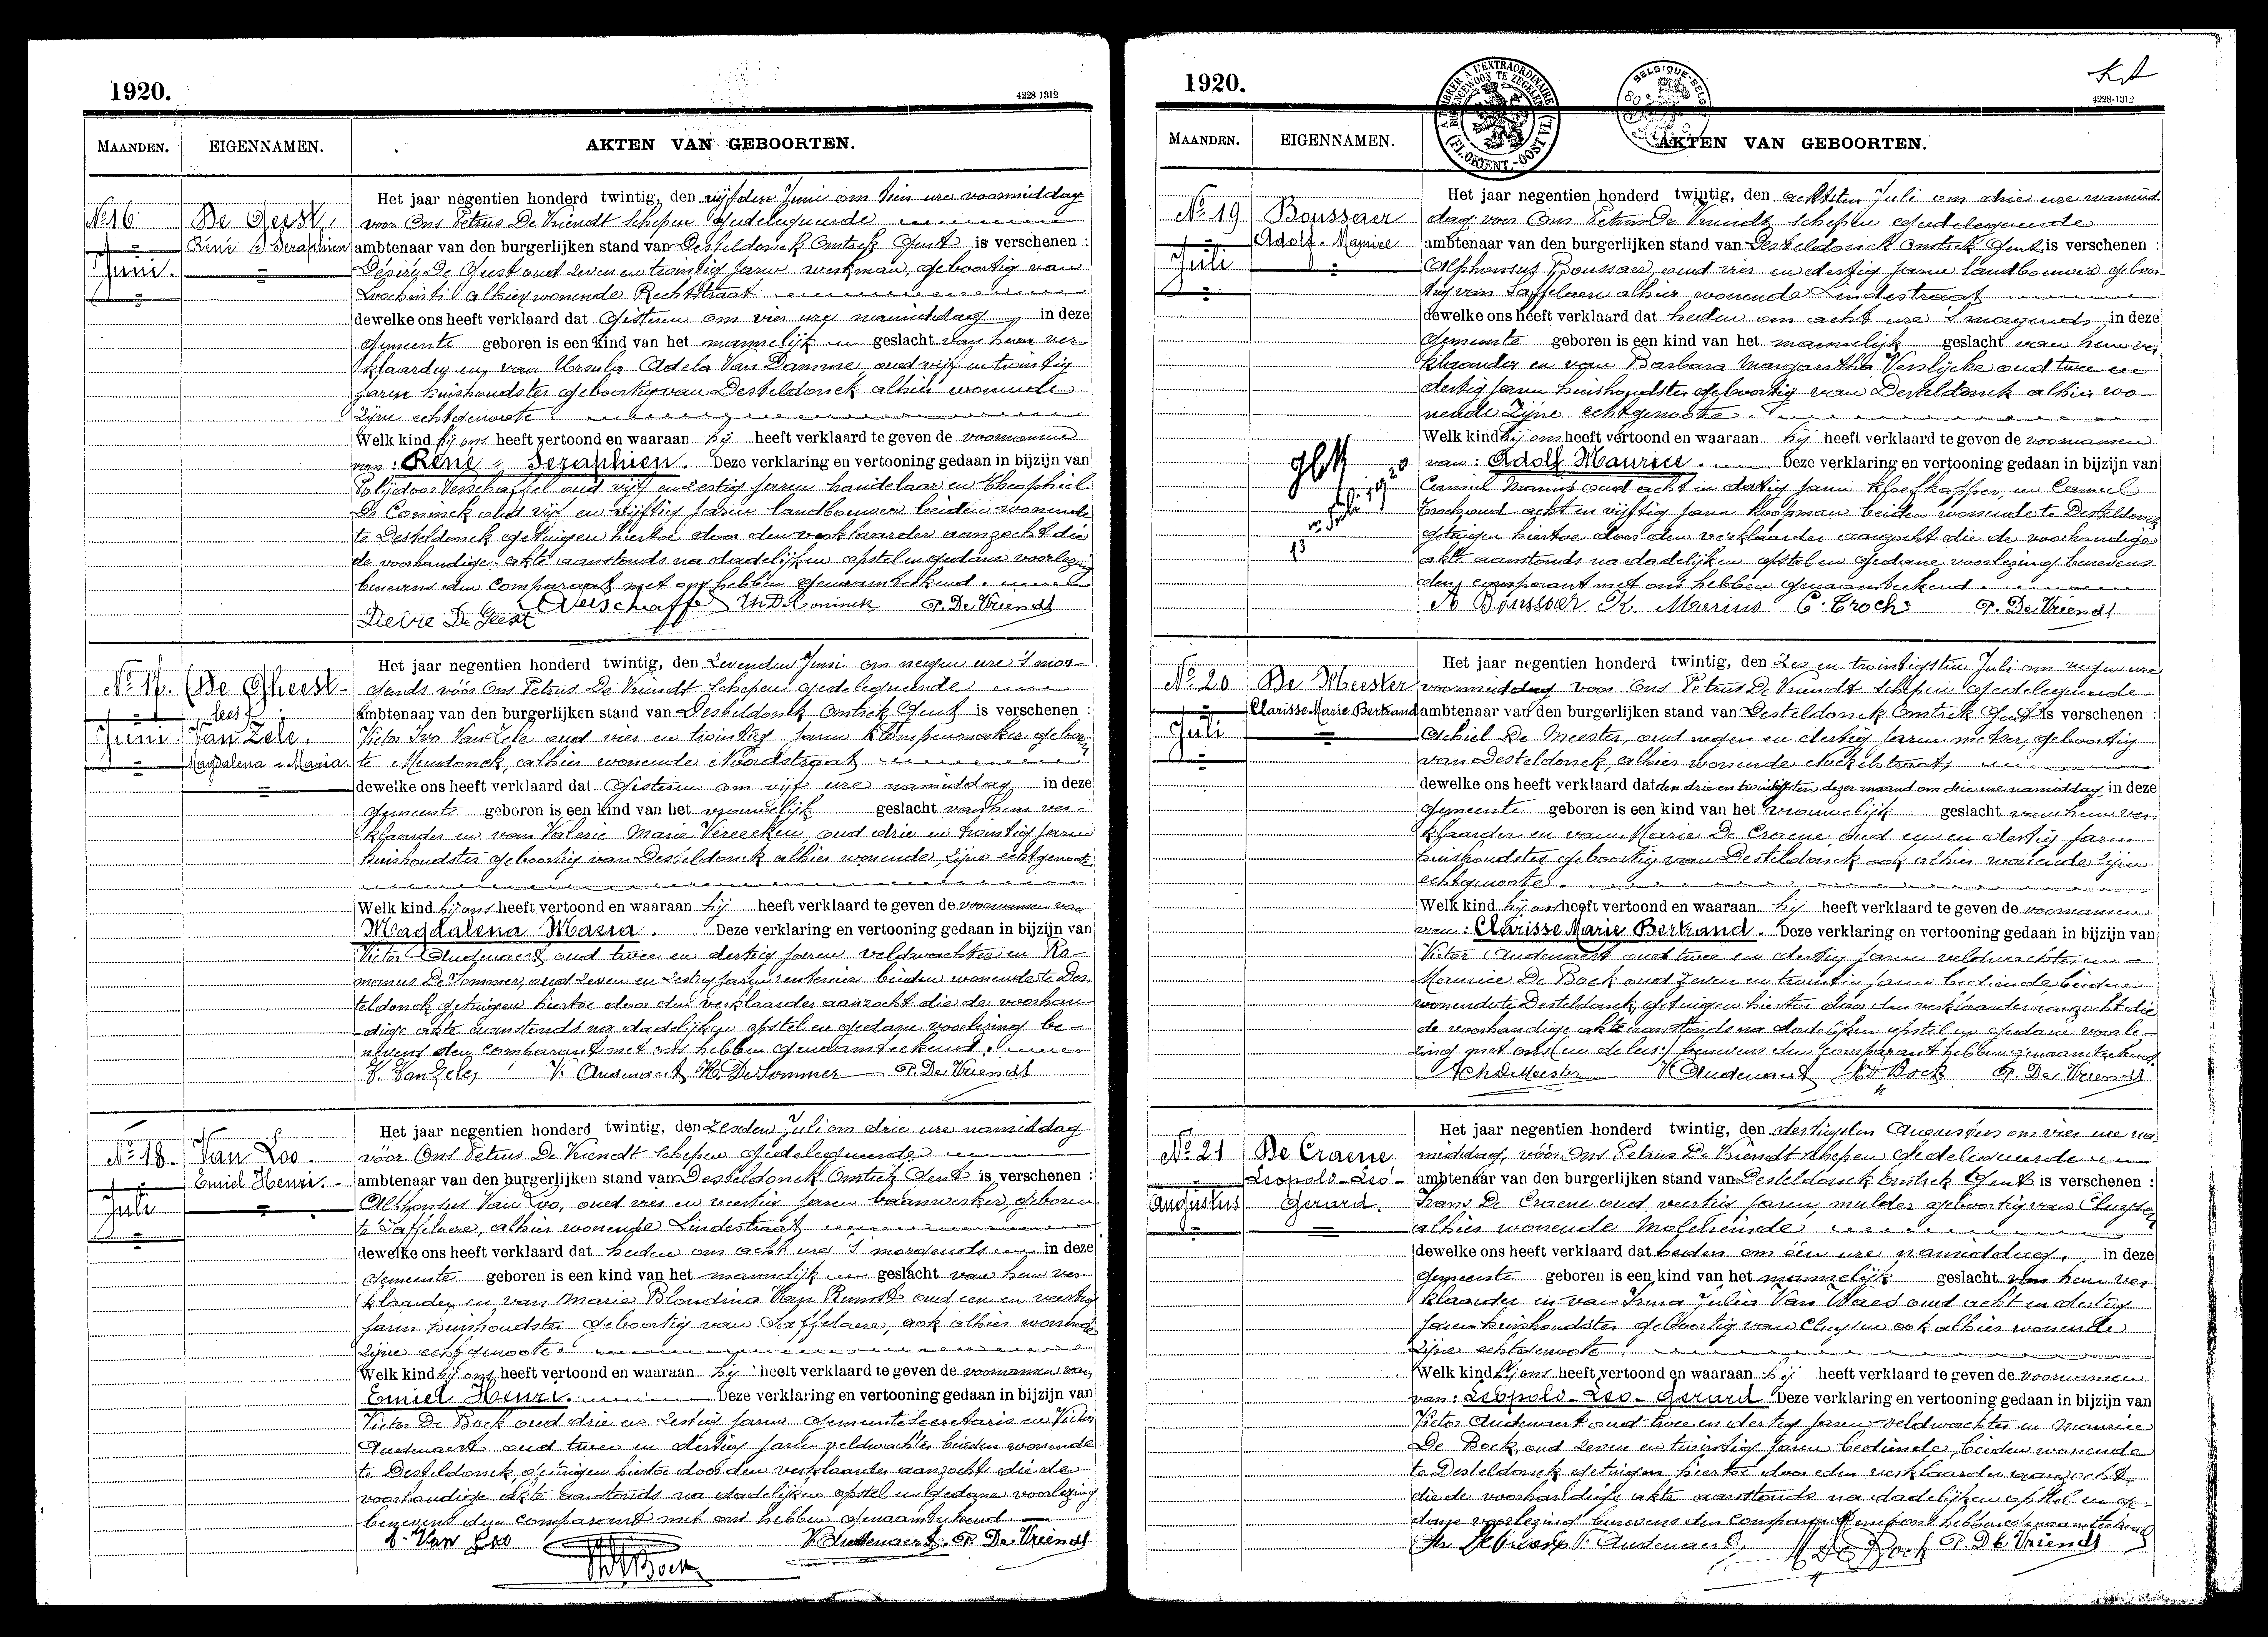 1920.
4228-1312
MAANDEN.
EIGENNAMEN.
AKTEN VAN GEBOORTEN.
No 16
Juni.
De Geest,
René Seraphien
Het jaar negentien honderd twintig, den vijfden Juni om tien ure voormiddag
voor Ons Petrus De Vriendt Schepen Gedelegueerde
ambtenaar van den burgerlijken stand van Desteldonck Omtrek Gent is verschenen :
Désiré De Geest oud zeven en twintig jaren werkman, geboortig van
Loochristi alhier wonende Rechtstraat
dewelke ons heeft verklaard dat Gisteren om vier ure namiddag in deze
Gemeente geboren is een kind van het mannelijk geslacht van hem ver-
klaarder en van Ursula Adela Van Damme, oud vijf en twintig
jaren huishoudster geboortig van Desteldonck alhier wonende
zijne echtgenoote.
Welk kind hij ons heeft vertoond en waaraan hij heeft verklaard te geven de voornamen
van : René - Seraphien. Deze verklaring en vertooning gedaan in bijzijn van
Verschaffel oud vijf en zestig jaren handelaar en Theophiel
De Coninck oud vijf en vijftig jaren landbouwer beiden wonende
te Desteldonck getuigen hiertoe door den verklaarder aanzocht die
de voorhandige akte aanstonds na dadelijken opstel en gedane voorlezing
benevens den Comparant met ons hebben genaamteekend.
Desiré De Geest Verschaffel Th. De Coninck P. De Vriendt
No 17.
Juni
De Gheest
lees
Van Zele,
Magdalena - Maria.
Het jaar negentien honderd twintig, den Zevenden Juni om negen ure 's mor-
gends vóór Ons Petrus De Vriendt Schepen gedelegueerde
ambtenaar van den burgerlijken stand van Desteldonck Omtrek Gent is verschenen :
Victor Ivo Van Zele oud vier en twintig jaren klompenmaker geboren
te Mendonck, alhier wonende Noordstraat
dewelke ons heeft verklaard dat Gisteren om vijf ure namiddag in deze
Gemeente geboren is een kind van het vrouwelijk geslacht van hem ver-
klaarder en van Valerie Marie Vereecken oud drie en twintig jaren
huishoudster geboortig van Desteldonck alhier wonende zijne echtgenoote
Welk kind hij ons heeft vertoond en waaraan hij heeft verklaard te geven de voornamen van
Magdalena Maria. Deze verklaring en vertooning gedaan in bijzijn van
Victor Audenaert oud twee en dertig jaren veldwachter en Ro-
manus De Sommer, oud zeven en zestig jaren rentenier beiden wonende te Des-
teldonck getuigen hiertoe door den verklaarder aanzocht die de voorhan-
dige akte aanstonds na dadelijken opstel en gedane voorlezing be-
nevens den Comparant met ons hebben genaamteekend.
V. Van Zele, V. Audenaert R. De Sommer P. De Vriendt
No 18.
Juli
Van Loo.
Emiel Henri.
Het jaar negentien honderd twintig, den Zesden Juli om drie ure namiddag
vóór Ons Petrus De Vriendt Schepen Gedelegueerde
ambtenaar van den burgerlijken stand van Desteldonck Omtrek Gent is verschenen :
Alphonsus Van Loo, oud vier en veertig jaren baanwerker, geboren
te Saffelaere, alhier wonende Lindestraat
dewelke ons heeft verklaard dat heden om acht ure 's morgends in deze
Gemeente geboren is een kind van het mannelijk geslacht van hem ver-
klaarder en van Marie Blondina Van Rumst oud een en veertig
jaren huishoudster geboortig van Saffelaere, ook alhier wonende
zijne echtgenoote.
Welk kind hij ons heeft vertoond en waaraan hij heeft verklaard te geven de voornamen van
Emiel Henri. Deze verklaring en vertooning gedaan in bijzijn van
Victor De Bock oud drie en zestig jaren gemeente Secretaris en Victor
Audenaert oud twee en dertig jaren veldwachter beiden wonende
te Desteldonck, getuigen hiertoe door den verklaarder aanzocht die de
voorhandige akte aanstonds na dadelijken opstel en gedane voorlezing
benevens den comparant met ons hebben genaamteekend.
A. Van Loo V. Audenaert. P. De Vriendt
De Bock
1920.
4228-1312
MAANDEN.
EIGENNAMEN.
AKTEN VAN GEBOORTEN.
No 19
Juli
Boussaer
Adolf - Maurice
Het jaar negentien honderd twintig, den achtsten Juli om drie ure namid-
dag voor Ons Petrus De Vriendt Schepen Gedelegueerde
ambtenaar van den burgerlijken stand van Desteldonck Omtrek Gent is verschenen :
Alphonsus Boussaer, oud vier en dertig jaren landbouwer geboor-
tig van Saffelaere alhier wonende Lindestraat
dewelke ons heeft verklaard dat heden om acht ure 's morgends in deze
Gemeente geboren is een kind van het mannelijk geslacht van hem ver-
klaarder en van Barbara Margaretha Verslycke oud twee en
dertig jaren huishoudster geboortig van Desteldonck alhier wo-
nende zijne echtgenoote.
Welk kind hij ons heeft vertoond en waaraan hij heeft verklaard te geven de voornamen
van : Adolf Maurice. Deze verklaring en vertooning gedaan in bijzijn van
Camiel Marius oud acht en dertig jaren kloefkapper, en Camiel
Croch oud acht en vijftig jaren koopman beiden wonende te Desteldonck
getuigen hiertoe door den verklaarder aanzocht die de voorhandige
akte aanstonds na dadelijken opstel en gedane voorlezing benevens
den comparant met ons hebben genaamteekend.
A Boussaer K. Marius C. Croch P. De Vriendt
No 20
Juli
De Meester
Clarisse Marie Bertrand
Het jaar negentien honderd twintig, den Zes en twintigsten Juli om negen ure
voormiddag voor Ons Petrus De Vriendt Schepen Gedelegueerde
ambtenaar van den burgerlijken stand van Desteldonck Omtrek Gent is verschenen :
Achiel De Meester, oud negen en dertig jaren metser, geboortig
van Desteldonck, alhier wonende straat,
dewelke ons heeft verklaard dat den drie en twintigsten dezer maand om drie ure namiddag in deze
Gemeente geboren is een kind van het vrouwelijk geslacht van hem ver-
klaarder en van Marie De Craene oud een en dertig jaren
huishoudster geboortig van Desteldonck ook alhier wonende zijne
echtgenoote.
Welk kind hij ons heeft vertoond en waaraan hij heeft verklaard te geven de voornamen
van : Clarisse Marie Bertrand. Deze verklaring en vertooning gedaan in bijzijn van
Victor Audenaert oud twee en dertig jaren veldwachter en
Maurice De Bock oud zeven en twintig jaren bediende beiden
wonende te Desteldonck, getuigen hiertoe door den verklaarder aanzocht die
de voorhandige akte aanstonds na dadelijken opstel en gedane voorle-
zing met ons benevens den comparant hebben genaamteekend.
Ach De Meester V Audenaert De Bock P. De Vriendt
No 21
Augustus
De Craene
Leopold - Leo -
Gerard.
Het jaar negentien honderd twintig, den dertigsten Augustus om vier ure na-
middag, vóór Ons Petrus De Vriendt Schepen Gedelegueerde
ambtenaar van den burgerlijken stand van Desteldonck Omtrek Gent is verschenen :
Frans De Craene oud veertig jaren, mulder geboortig van Cluysen
alhier wonende Moleneinde
dewelke ons heeft verklaard dat heden om één ure namiddag, in deze
Gemeente geboren is een kind van het mannelijk geslacht van hem ver-
klaarder en van Irma Julia Van Waes oud acht en dertig
jaren huishoudster geboortig van Cluysen ook alhier wonende
zijne echtgenoote.
Welk kind hij ons heeft vertoond en waaraan hij heeft verklaard te geven de voornamen
van : Leopold - Leo - Gerard Deze verklaring en vertooning gedaan in bijzijn van
Victor Audenaert oud twee en dertig jaren veldwachter en Maurice
De Bock, oud zeven en twintig jaren bediende, beiden wonende
te Desteldonck getuigen hiertoe door den verklaarder aanzocht
die de voorhandige akte aanstonds na dadelijken opstel en ge-
dane voorlezing benevens den comparant met ons hebben genaamteekend
V. Audenaert. De Bock P. De Vriendt